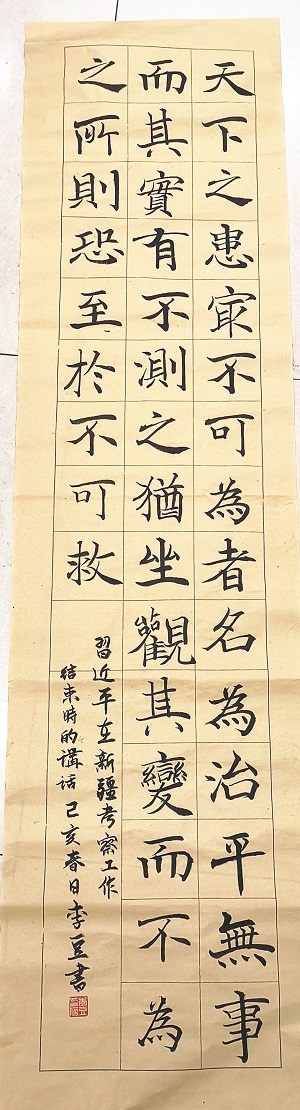 天下之患㝡不可為者名為治平無事
而其實有不測之猶坐觀其變而不為
之所則恐至於不可救
習近平在新疆考察工作
结束時的講话 己亥春日李豆書